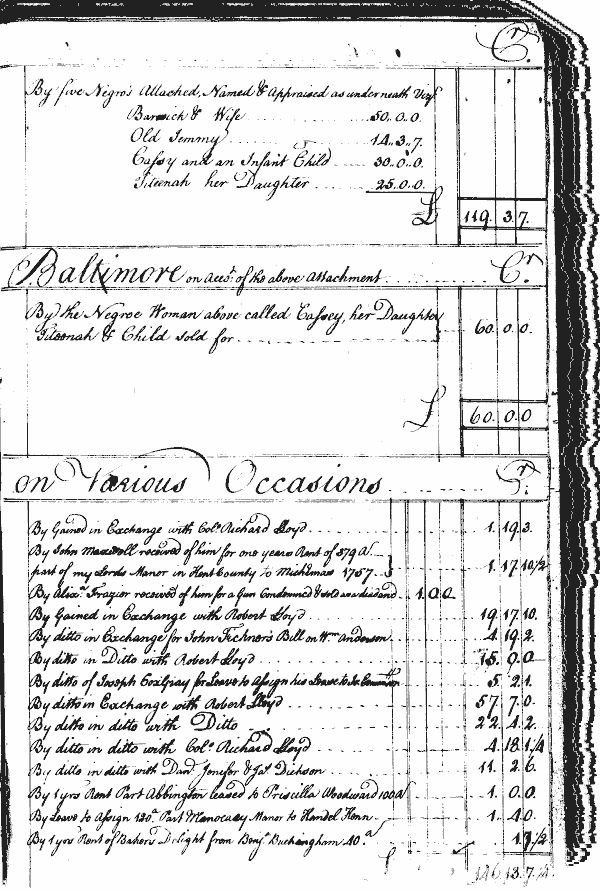 Cr.
By five Negro's Attached, Named & Appraised as underneath Vizt
Barwick & Wife 50.0.0.
Old Jemmy 14.3.7.
Cassy and an Infant Child 30.0.0.
her Daughter 25.0.0.
£ 119.3.7.
Baltimore on Accot. of the above Attachment Cr.
By the Negroe Woman above called Cassey, her Daughter
& Child sold for 60.0.0.
£ 60.0.0
on Various Occasions Cr.
By Gained in Exchange with Colo. Richard Lloyd 1.19.3.
By John Maxwell received of him for one years Rent of 379 a.
part of my Lords Manor in Kent County to Michmas 1757 1.17.10/2
By Alexr. Frazier received of him for a Gun Condemned & sold as a deodand 1.0.0.
By Gained in Exchange with Robert Lloyd 19.17.10.
By ditto in Exchange for John Bill on Wm Anderson 4.19.2.
By ditto in Ditto with Robert Lloyd 15.0.0
By ditto of Joseph Cox Gray for Leave to Assign his Lease to 5.2.1.
By ditto in Exchange with Robert Lloyd 57.7.0.
By ditto in ditto with Ditto 22.4.2.
By ditto in ditto with Colo. Richard Lloyd 4.18.1/4
By ditto in ditto with Danl. Jenifer & Jas. Dickson 11.2.6.
By 1 yrs Rent Part Abbington leased to Priscilla Woodward 100 a 1.0.0.
By Leave to Assign 130 a. Part Monocacy Manor to Handel Henn 1.4.0.
By 1 yrs Rent of Bakers Delight from Benj. Buckingham 40. a
£ 146.13.7/4